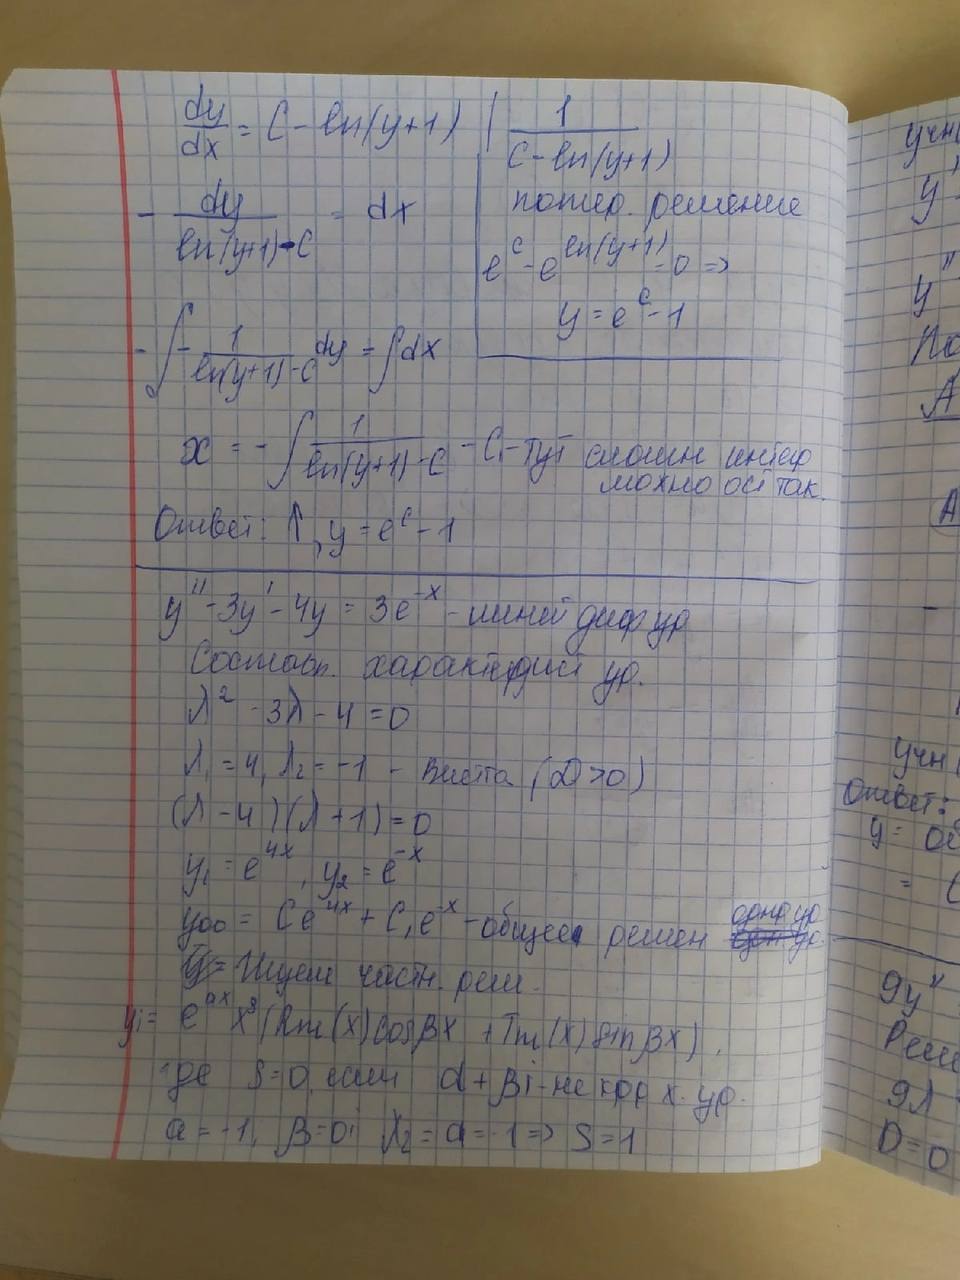 dy/dx = C - ln(y+1) | 1/(C - ln(y+1))
- dy/(ln(y+1) - C) = dx
потер. решение
e^C - e^ln(y+1) = 0 =>
y = e^C - 1
- ∫ - 1/(ln(y+1) - C) dy = ∫ dx
x = - ∫ 1/(ln(y+1) - C) - C₁ - тут сложн интегр
можно ост так.
Ответ: ↑, y = e^C - 1
y'' - 3y' - 4y = 3e^-x - линей диф ур
Состав. характерист ур.
λ² - 3λ - 4 = 0
λ₁ = 4, λ₂ = -1 - Виетта (D>0)
(λ - 4)(λ + 1) = 0
y₁ = e^4x, y₂ = e^-x
yоо = Ce^4x + C₁e^-x - общее решен одно ур
Ищем частн. реш.
y₁ = e^ax x^s (Rm(x)cosβx + Tm(x)sinβx),
где S=0, если α + βi - не кор х. ур.
a = -1, β = 0; λ₂ = a = -1 => S = 1
учн
y'
y''
По
A
A
-
учн
Ответ:
y =
= (
9y''
Реш
9λ
D = 0